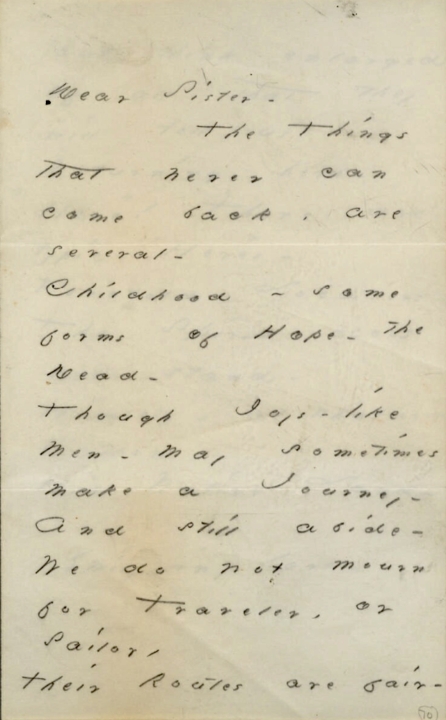 Dear Sister -
The Things
that never can
come back, are
several -
Childhood - some
forms of Hope - the
Dead -
Though Joys - like
Men - may sometimes
make a Journey -
And still abide -
We do not mourn
for Traveler, or
Sailor,
their Routes are fair -